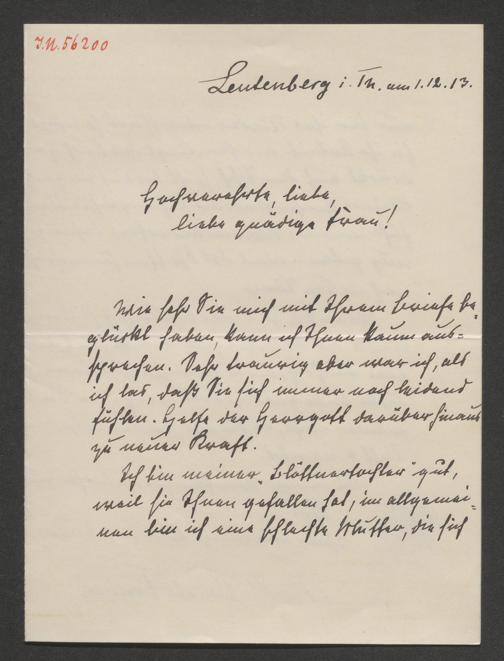 J.N. 56200
Leutenberg i. Th. am 1.12.13.
Hochverehrte, liebe,
liebe gnädige Frau!
Wie sehr Sie mich mit Ihrem Briefe be-
glückt haben, kann ich Ihnen kaum aus-
sprechen. Sehr traurig aber war ich, als
ich las, daß Sie sich immer noch leidend
fühlen. Helfe der Herrgott darüber hinaus
zu neuer Kraft.
Ich bin meiner „Blöttnertochter" gut,
weil sie Ihnen gefallen hat, im allgemei-
nen bin ich eine schlechte Mutter, die sich